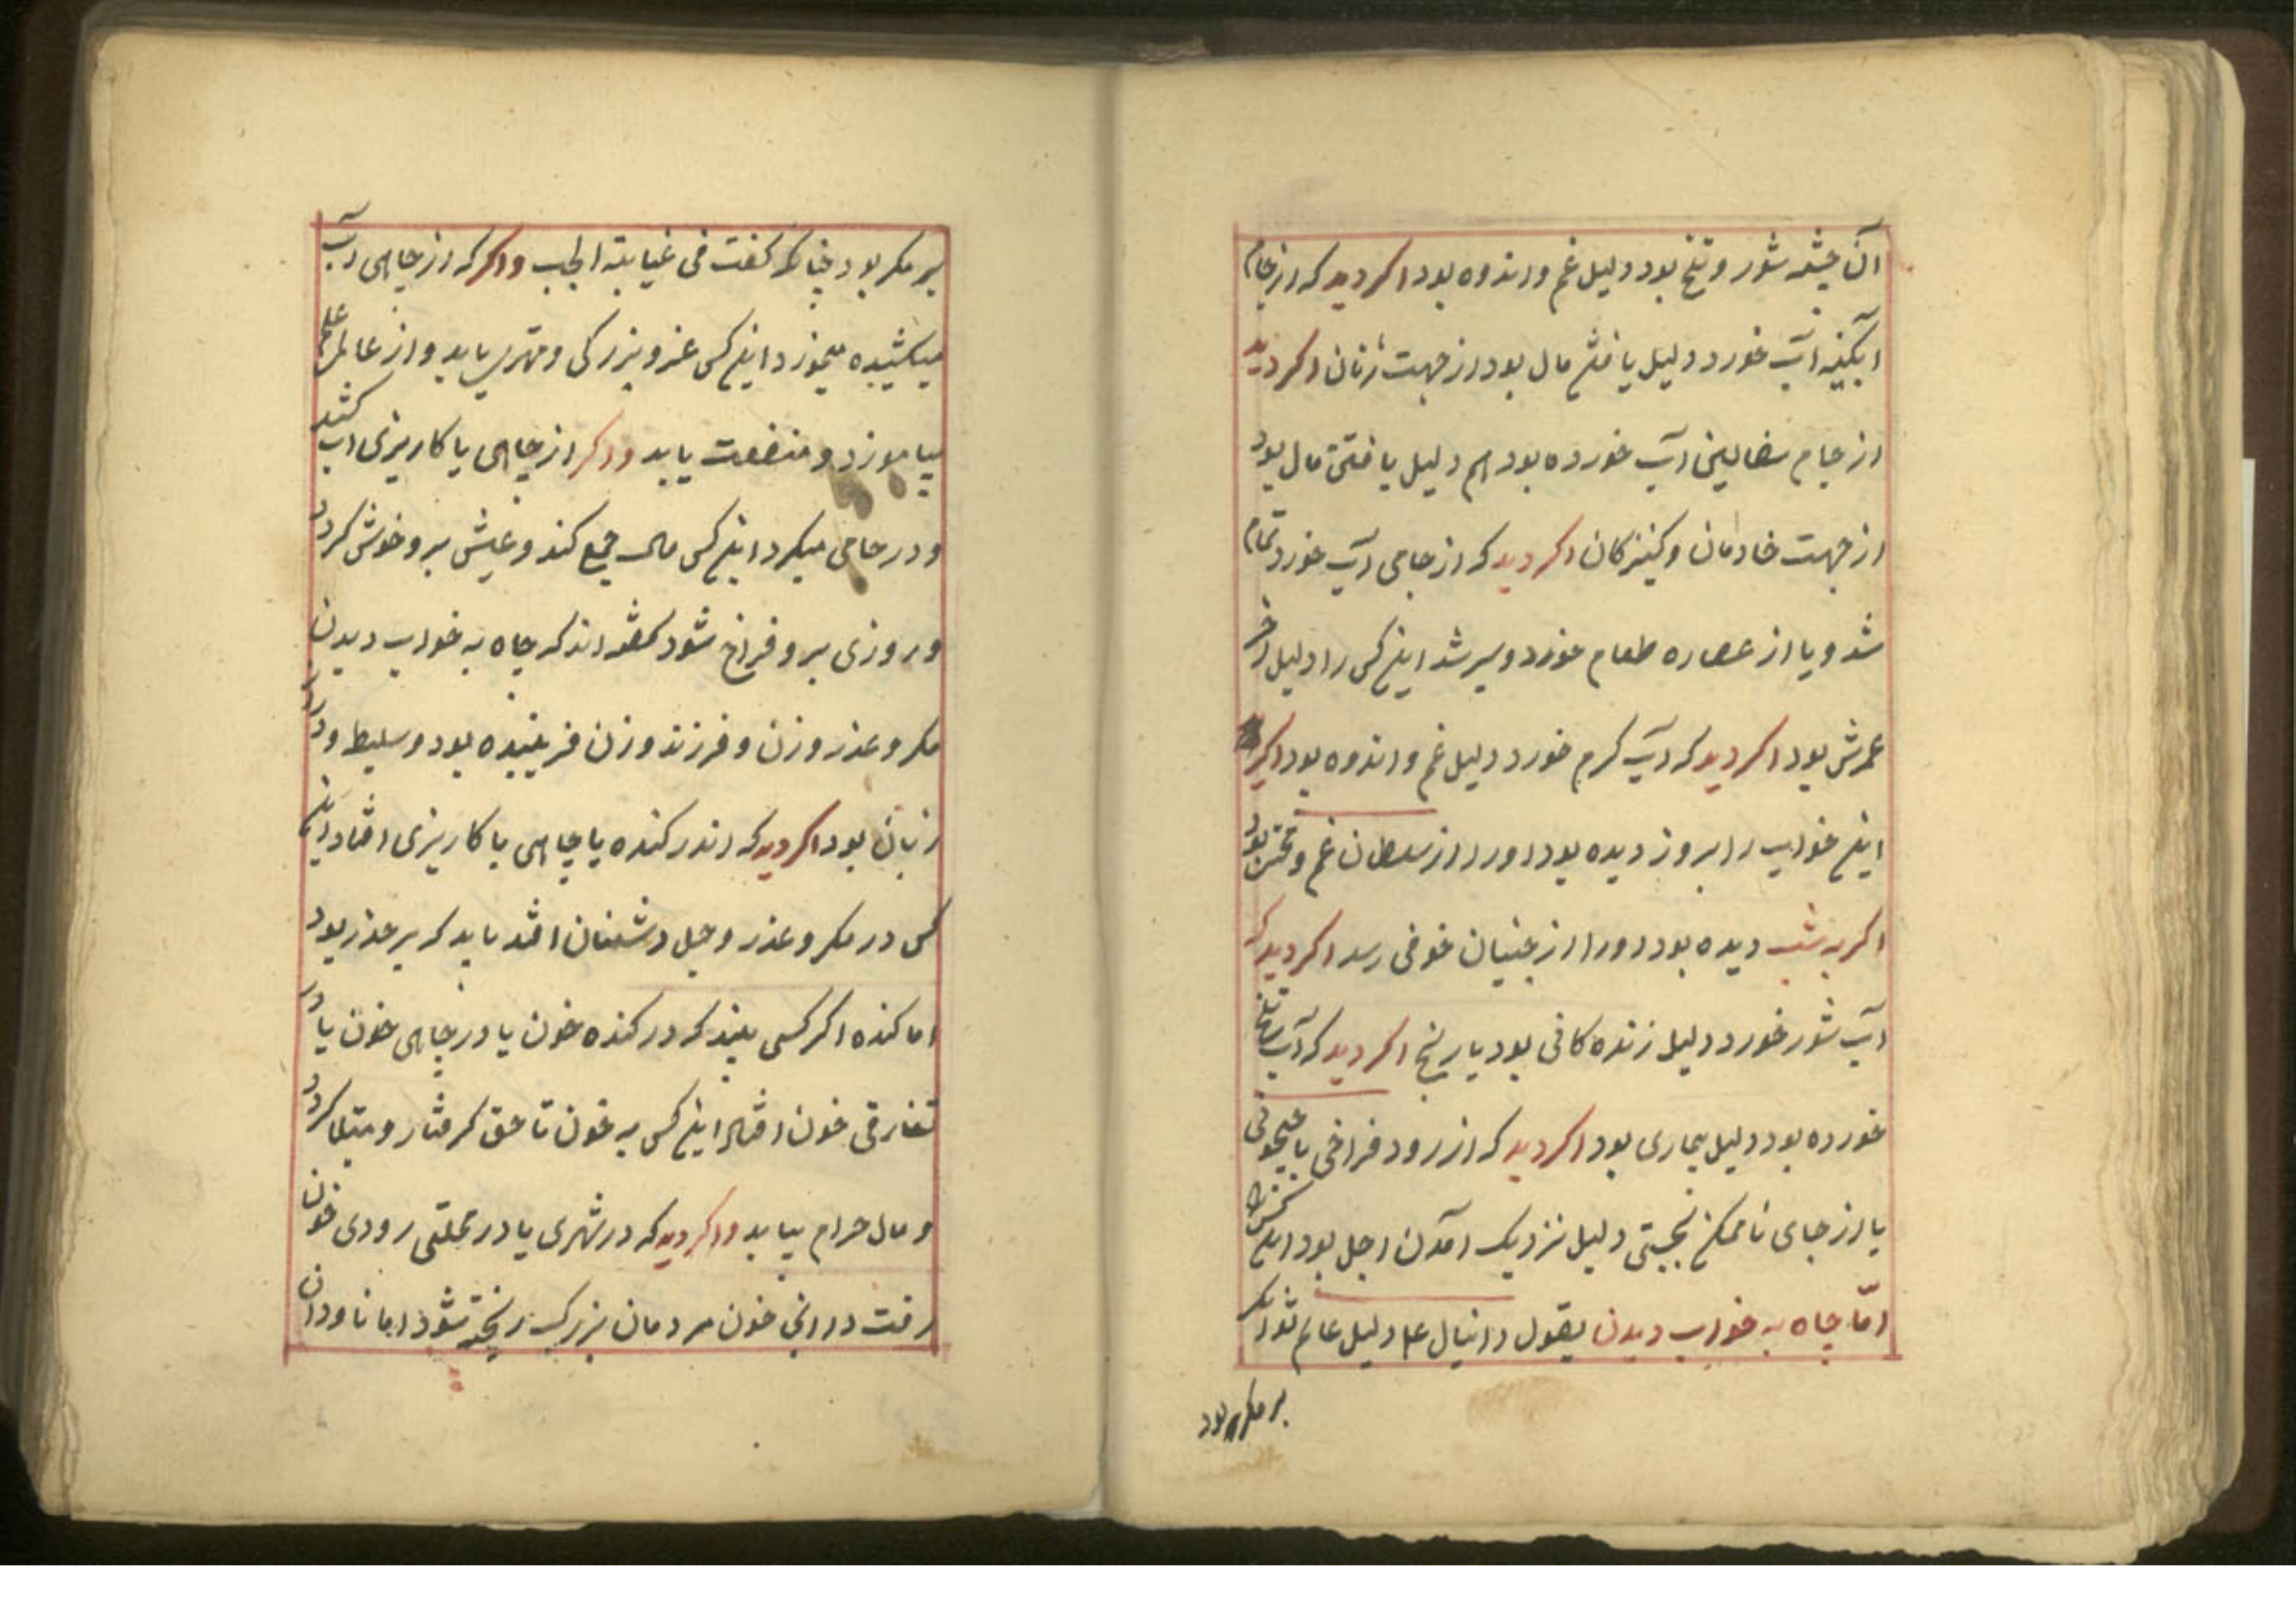 آن چشمه شور و تلخ بود دلیل غم و اندوه بود اکر دید که از جام
آبکینه آب خورد دلیل یافتن مال بود از جهت زنان اکر دید
از جام سفالین آب خورده بود هم دلیل یافتن مال بود
از جهت خادمان و کنیزکان اکر دید که از جامی آب خورد تمام
شد و یا از عصاره طعام خورد و سیر شد این کس را دلیل آخر
عمرش بود اکر دید که آب کرم خورد دلیل غم و اندوه بود اکر
این خواب را بروز دیده بود او را از سلطان غم و محنت بود
اکر به شب دیده بود او را از جنیان خوفی رسد اکر دید که
آب شور خورد دلیل زنده کانی بود با رنج اکر دید که آب تلخ
خورده بود دلیل بیماری بود اکر دید که از رود فراخی یا جیحونی
یا از جای ناممکن بجستی دلیل نزدیک آمدن اجل بود این کس را
امّا چاه به خواب دیدن بقول دانیال ع م دلیل عالم بود
بر مکر بود
بر مکر بود چنانکه کفت فی غیابة الجب و اکر که از چاهی آب
میکشیده میخورد این کس عز و بزرکی و مهتری یابد و از عالم علم
بیاموزد و منفعت یابد و اکر از چاهی یا کاریزی آب کشد
و در جامی میکرد این کس مال جمع کند و عیش برو خوش کردد
و روزی برو فراخ شود کفته اند که چاه به خواب دیدن
مکر و عذر و زن و فرزند و زن فریبنده بود و سلیط و دراز
زبان بود اکر دید که اندر کنده یا چاهی یا کاریزی افتاد این
کس در مکر و عذر و حیل دشمنان افتد باید که بر حذر بود
اما کنده اکر کسی بیند که در کنده خون یا در چاهی خون یا در
تغارقی خون افتاد این کس به خون ناحق کرفتار و مبتلا کردد
و مال حرام بیابد و اکر دید که در شهری یا در محلتی رودی خون
رفت در آنجا خون مردمان بزرک ریخته شود اما ناودان